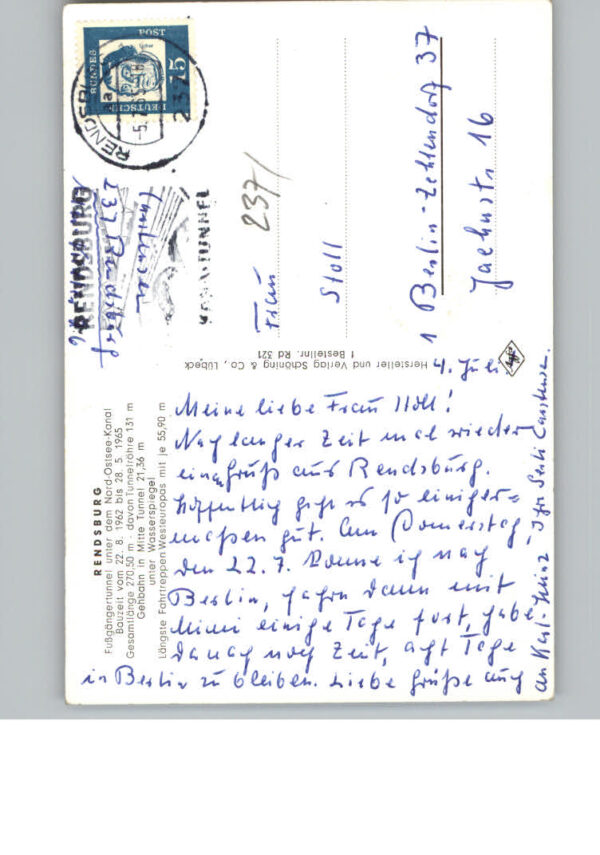 RENDSBURG
Fußgängertunnel unter dem Nord-Ostsee-Kanal
Bauzeit vom 22. 8. 1962 bis 28. 5. 1965
Gesamtlänge 270,50 m - davon Tunnelröhre 131 m
Gehbahn in Mitte Tunnel 21,36 m
unter Wasserspiegel
Längste Fahrtreppen Westeuropas mit je 55,90 m
4. Juli
Meine liebe Frau Stoll!
Nach langer Zeit mal wieder
einen Gruß aus Rendsburg.
Hoffentlich geht es so einiger=
maßen gut. Am Donnerstag,
den 22.7. komme ich nach
Berlin, fahre dann mit
Mimi einige Tage fort, habe
danach noch Zeit, acht Tage
in Berlin zu bleiben. Liebe Grüße auch
an Karl-Heinz, Ihre Senti Carstensen.
Hersteller und Verlag Schöning & Co., Lübeck
1 Bestellnr. Rd 321
Frau
Stoll
1 Berlin-Zehlendorf 37
Jaehnstr 16
237/
237 Rendsburg
RENDSBURG
KANALTUNNEL
RENDSBURG
2370
DEUTSCHE
BUNDES
POST
15